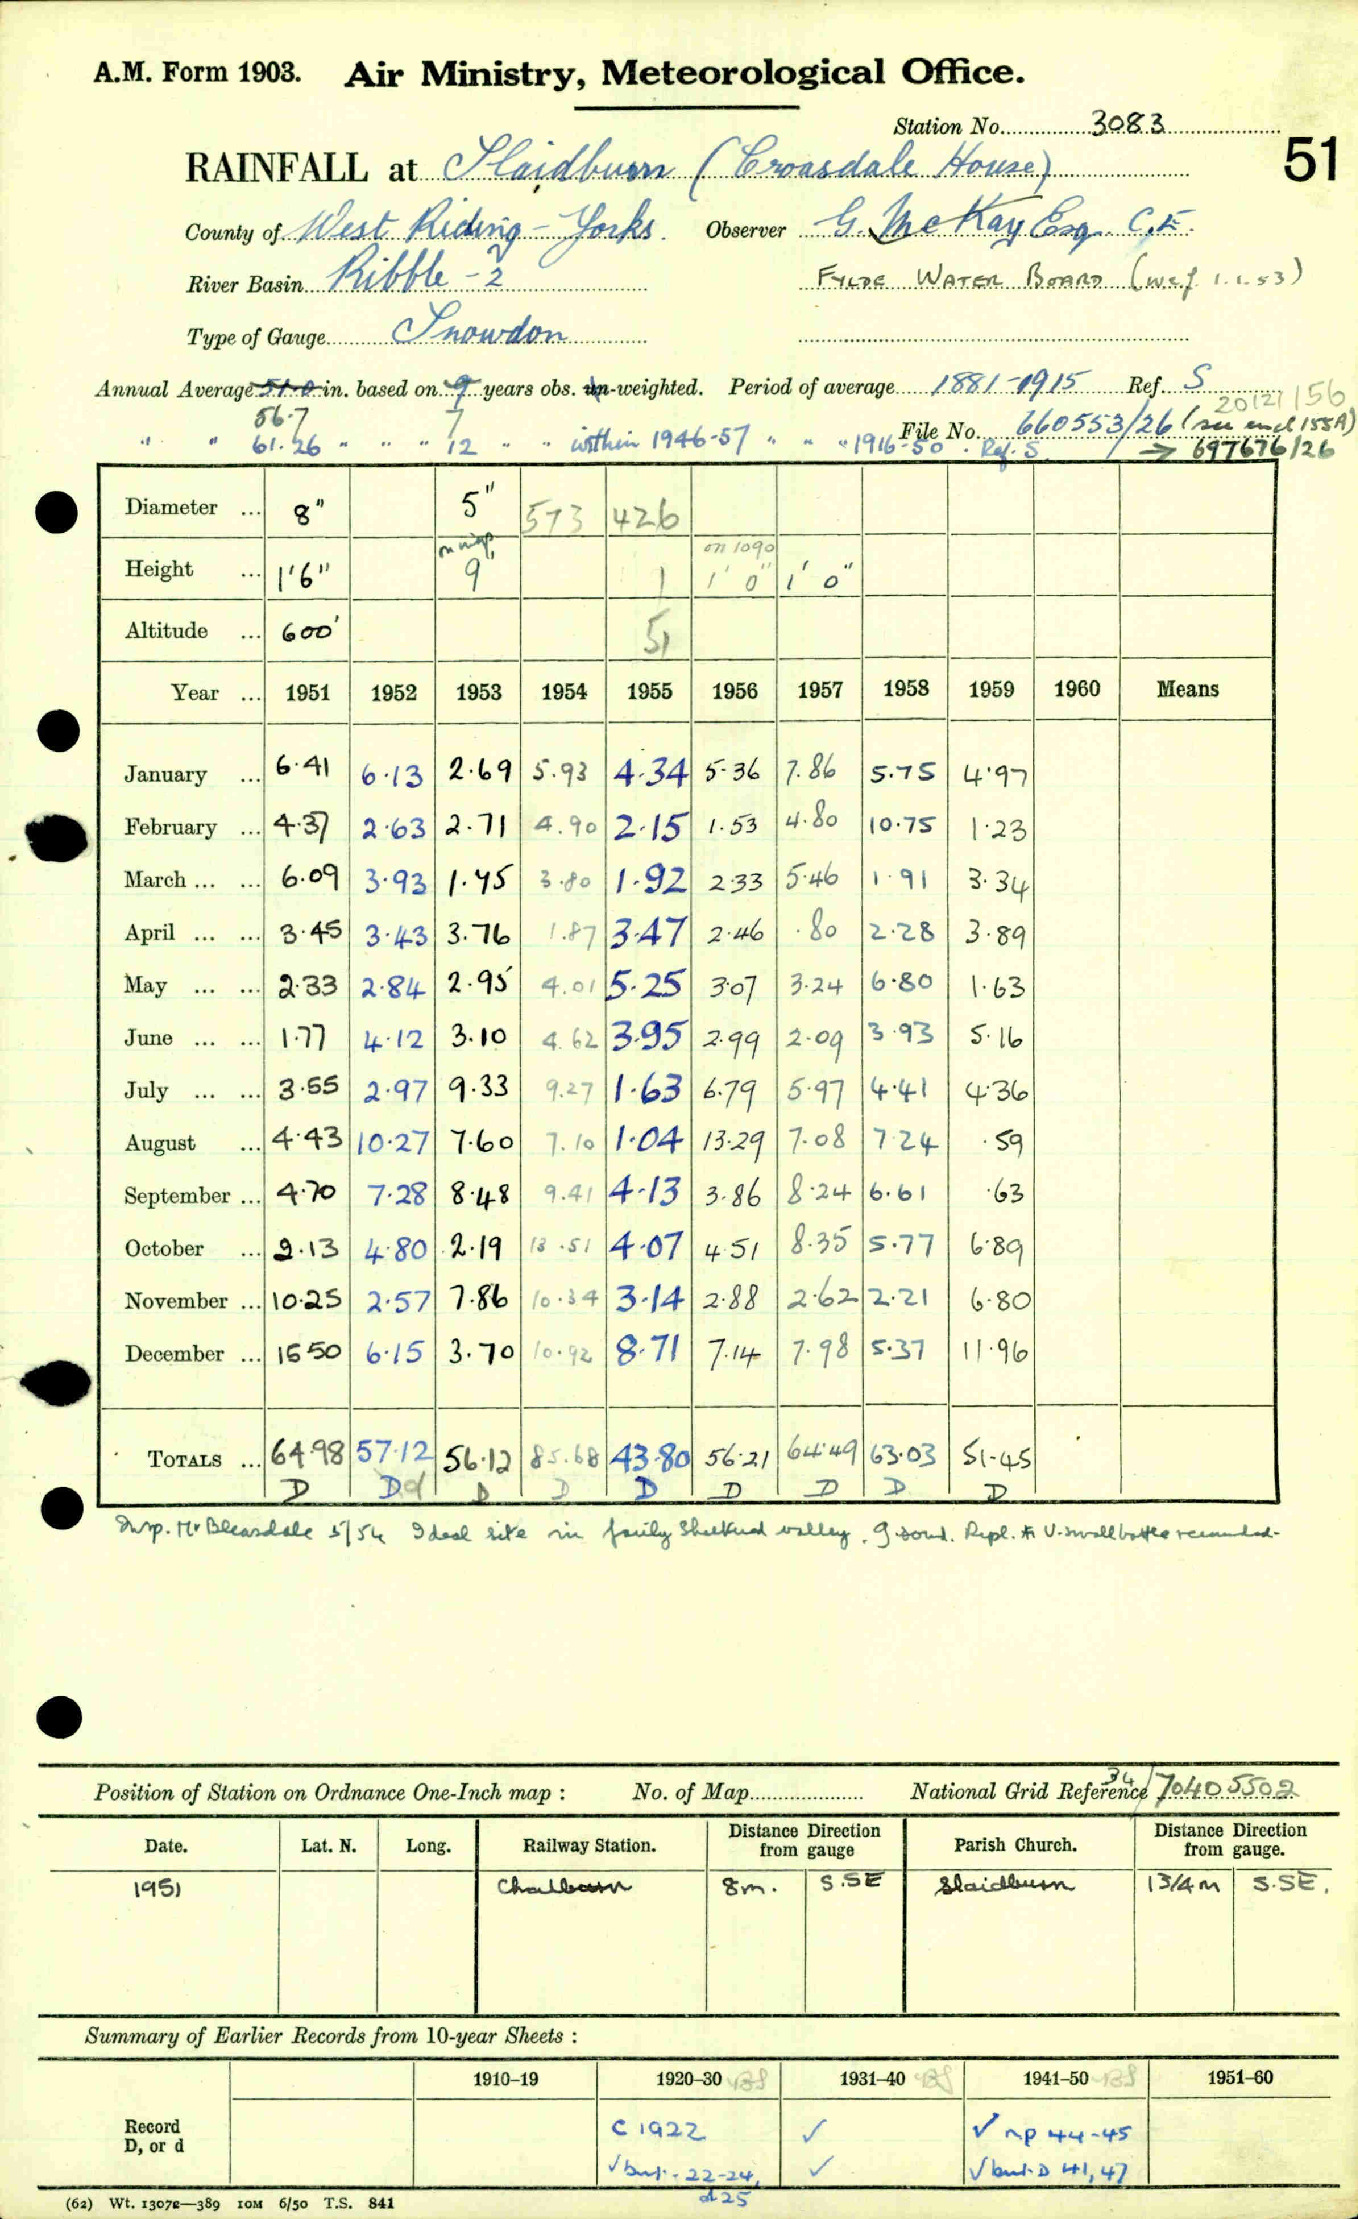 A.M. Form 1903. Air Ministry, Meteorological Office.
Station No. 3083
51
RAINFALL at Slaidburn (Croasdale House)
County of West Riding - Yorks. Observer G. McKay Esq. C.E.
River Basin Ribble - 2 FYLDE WATER BOARD (w.e.f 1.1.53)
Type of Gauge Snowdon
Annual Average 51.0 in. based on 9 years obs. un-weighted. Period of average 1881-1915 Ref. S
56.7 7 20121/56
File No. 660553/26 (see encl 155A)
" " 61.26 " " " 12 " " within 1946-57 " " " 1916-50. Ref. S → 697676/26
Diameter ... 8" 5" 573 426
Height ... 1'6" 9" 1 on 1090 1' 0" 1' 0"
Altitude ... 600' 51
Year ... 1951 1952 1953 1954 1955 1956 1957 1958 1959 1960 Means
January ... 6.41 6.13 2.69 5.93 4.34 5.36 7.86 5.75 4.97
February ... 4.37 2.63 2.71 4.90 2.15 1.53 4.80 10.75 1.23
March ... ... 6.09 3.93 1.75 3.80 1.92 2.33 5.46 1.91 3.34
April ... ... 3.45 3.43 3.76 1.87 3.47 2.46 .80 2.28 3.89
May ... ... 2.33 2.84 2.95 4.01 5.25 3.07 3.24 6.80 1.63
June ... ... 1.77 4.12 3.10 4.62 3.95 2.99 2.09 3.93 5.16
July ... ... 3.55 2.97 9.33 9.27 1.63 6.79 5.97 4.41 4.36
August ... 4.43 10.27 7.60 7.10 1.04 13.29 7.08 7.24 .59
September ... 4.70 7.28 8.48 9.41 4.13 3.86 8.24 6.61 .63
October ... 2.13 4.80 2.19 13.51 4.07 4.51 8.35 5.77 6.89
November ... 10.25 2.57 7.86 10.34 3.14 2.88 2.62 2.21 6.80
December ... 15.50 6.15 3.70 10.92 8.71 7.14 7.98 5.37 11.96
TOTALS ... 64.98 57.12 56.12 85.68 43.80 56.21 64.49 63.03 51.45
D D d D D D D D D D
Insp. Mr Bleasdale 5/54 Ideal site in fairly sheltered valley. Repl.
Position of Station on Ordnance One-Inch map : No. of Map National Grid Reference 34/70405502
Date. Lat. N. Long. Railway Station. Distance Direction from gauge Parish Church. Distance Direction from gauge.
1951 Chatburn 8m. S.SE Slaidburn 1 3/4 m S.SE.
Summary of Earlier Records from 10-year Sheets :
1910–19 1920–30 1931–40 1941–50 1951–60
Record D, or d
C 1922 ✓ ✓ np 44-45
✓ but - 22-24, ✓ ✓ but D 41, 47
d 25
(62) Wt. 13072—389 10M 6/50 T.S. 841